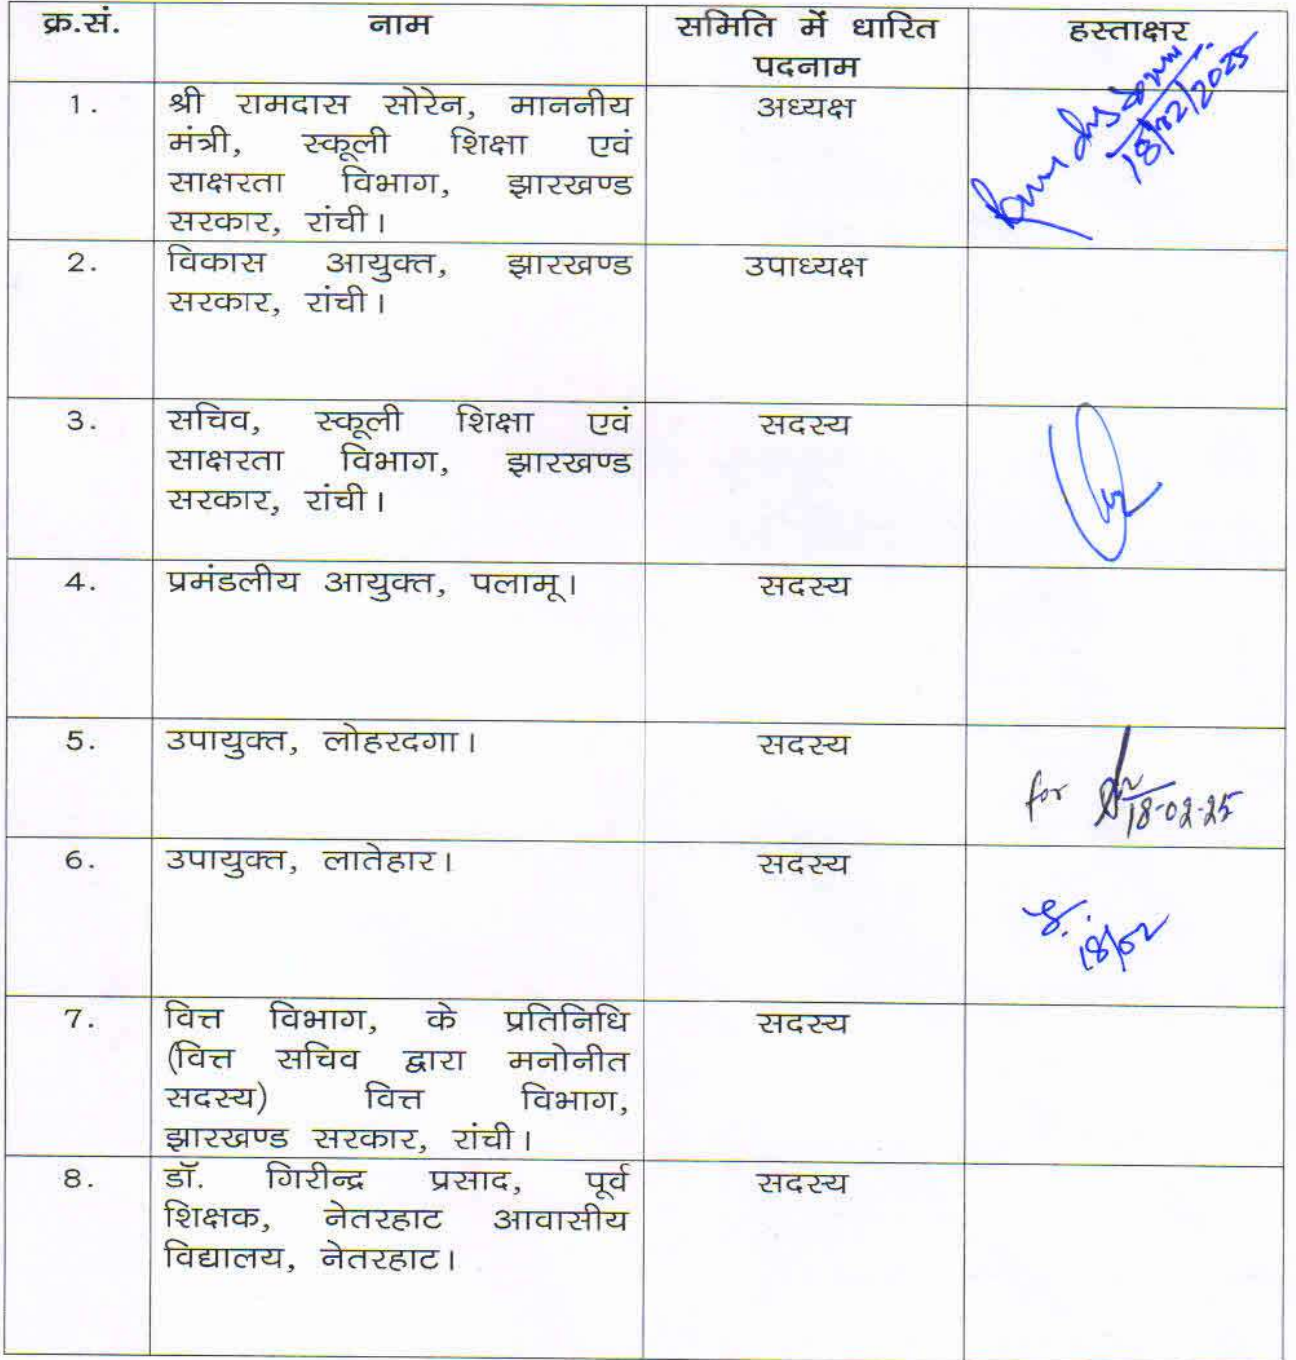 क्र.सं. नाम समिति में धारित हस्ताक्षर
पदनाम
1. श्री रामदास सोरेन, माननीय अध्यक्ष
मंत्री, स्कूली शिक्षा एवं
साक्षरता विभाग, झारखण्ड
सरकार, रांची।
18/02/2025
2. विकास आयुक्त, झारखण्ड उपाध्यक्ष
सरकार, रांची।
3. सचिव, स्कूली शिक्षा एवं सदस्य
साक्षरता विभाग, झारखण्ड
सरकार, रांची।
4. प्रमंडलीय आयुक्त, पलामू। सदस्य
5. उपायुक्त, लोहरदगा। सदस्य
for
18-02-25
6. उपायुक्त, लातेहार। सदस्य
18/02
7. वित्त विभाग, के प्रतिनिधि सदस्य
(वित्त सचिव द्वारा मनोनीत
सदस्य) वित्त विभाग,
झारखण्ड सरकार, रांची।
8. डॉ. गिरीन्द्र प्रसाद, पूर्व सदस्य
शिक्षक, नेतरहाट आवासीय
विद्यालय, नेतरहाट।